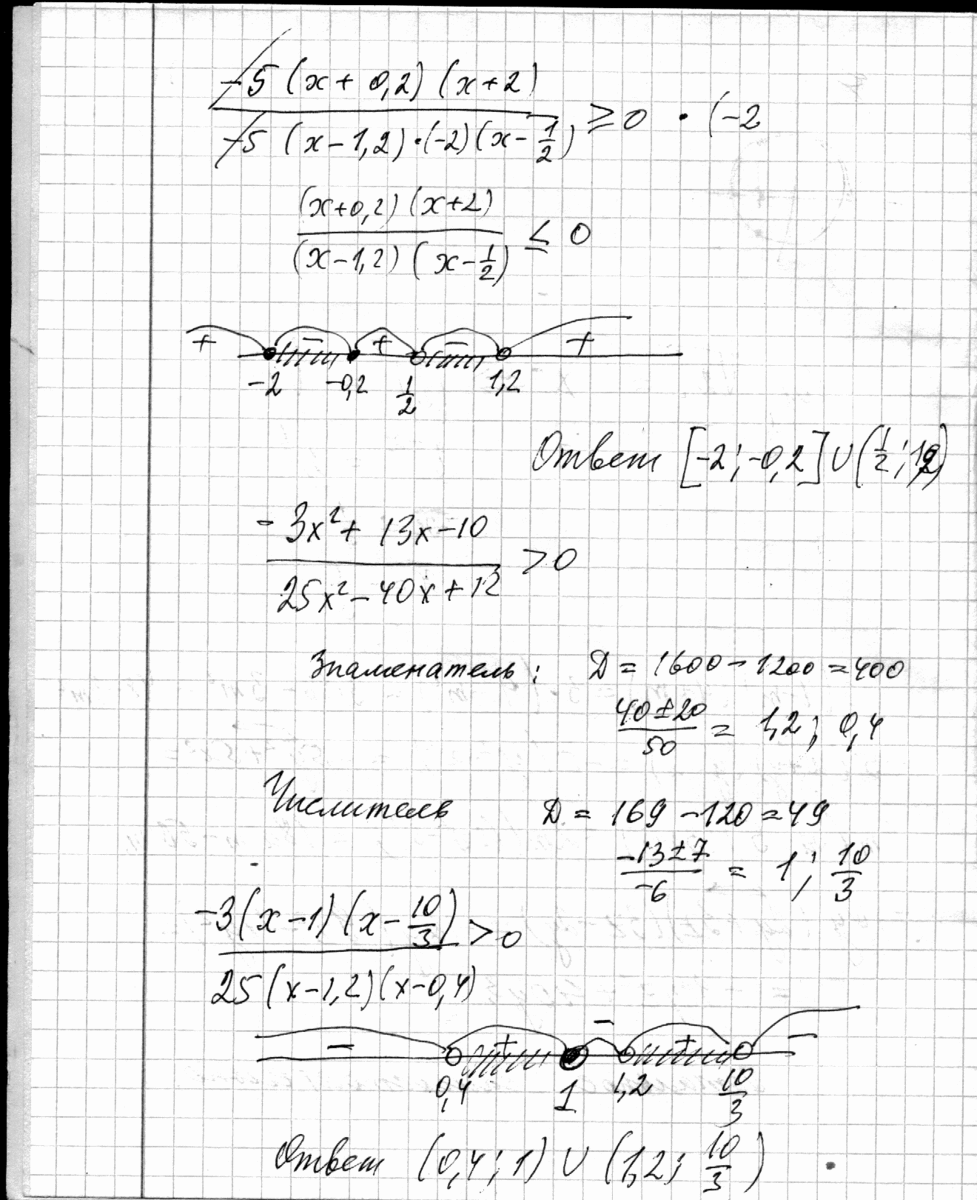 -5 (x + 0,2) (x+2) / -5 (x-1,2)·(-2)(x-1/2) ≥ 0 · (-2
(x+0,2)(x+2) / (x-1,2)(x-1/2) ≤ 0
+ - + - +
-2 -0,2 1/2 1,2
Ответ [-2; -0,2] ∪ (1/2; 1,2)
-3x²+ 13x-10 / 25x²-40x+12 > 0
Знаменатель: D = 1600-1200 = 400
40±20 / 50 = 1,2; 0,4
Числитель D = 169-120=49
-13±7 / -6 = 1; 10/3
-3(x-1)(x-10/3) / 25(x-1,2)(x-0,4) > 0
- + - + -
0,4 1 1,2 10/3
Ответ (0,4; 1) ∪ (1,2; 10/3)